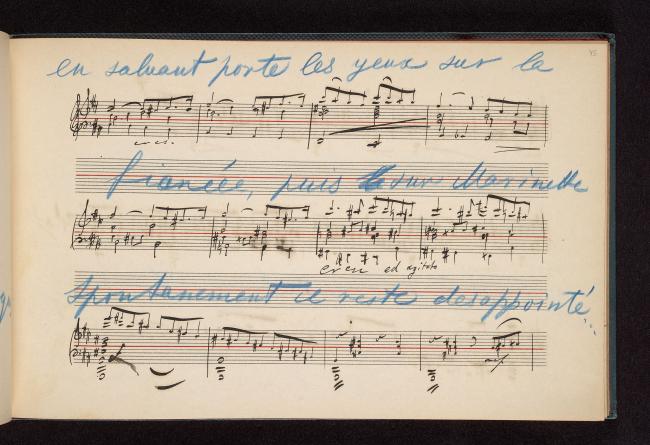 en saluant porte les yeux sur la
cres.
fiancée, puis sur Marinette
cres ed agitato
Spontanement il reste desappointé...